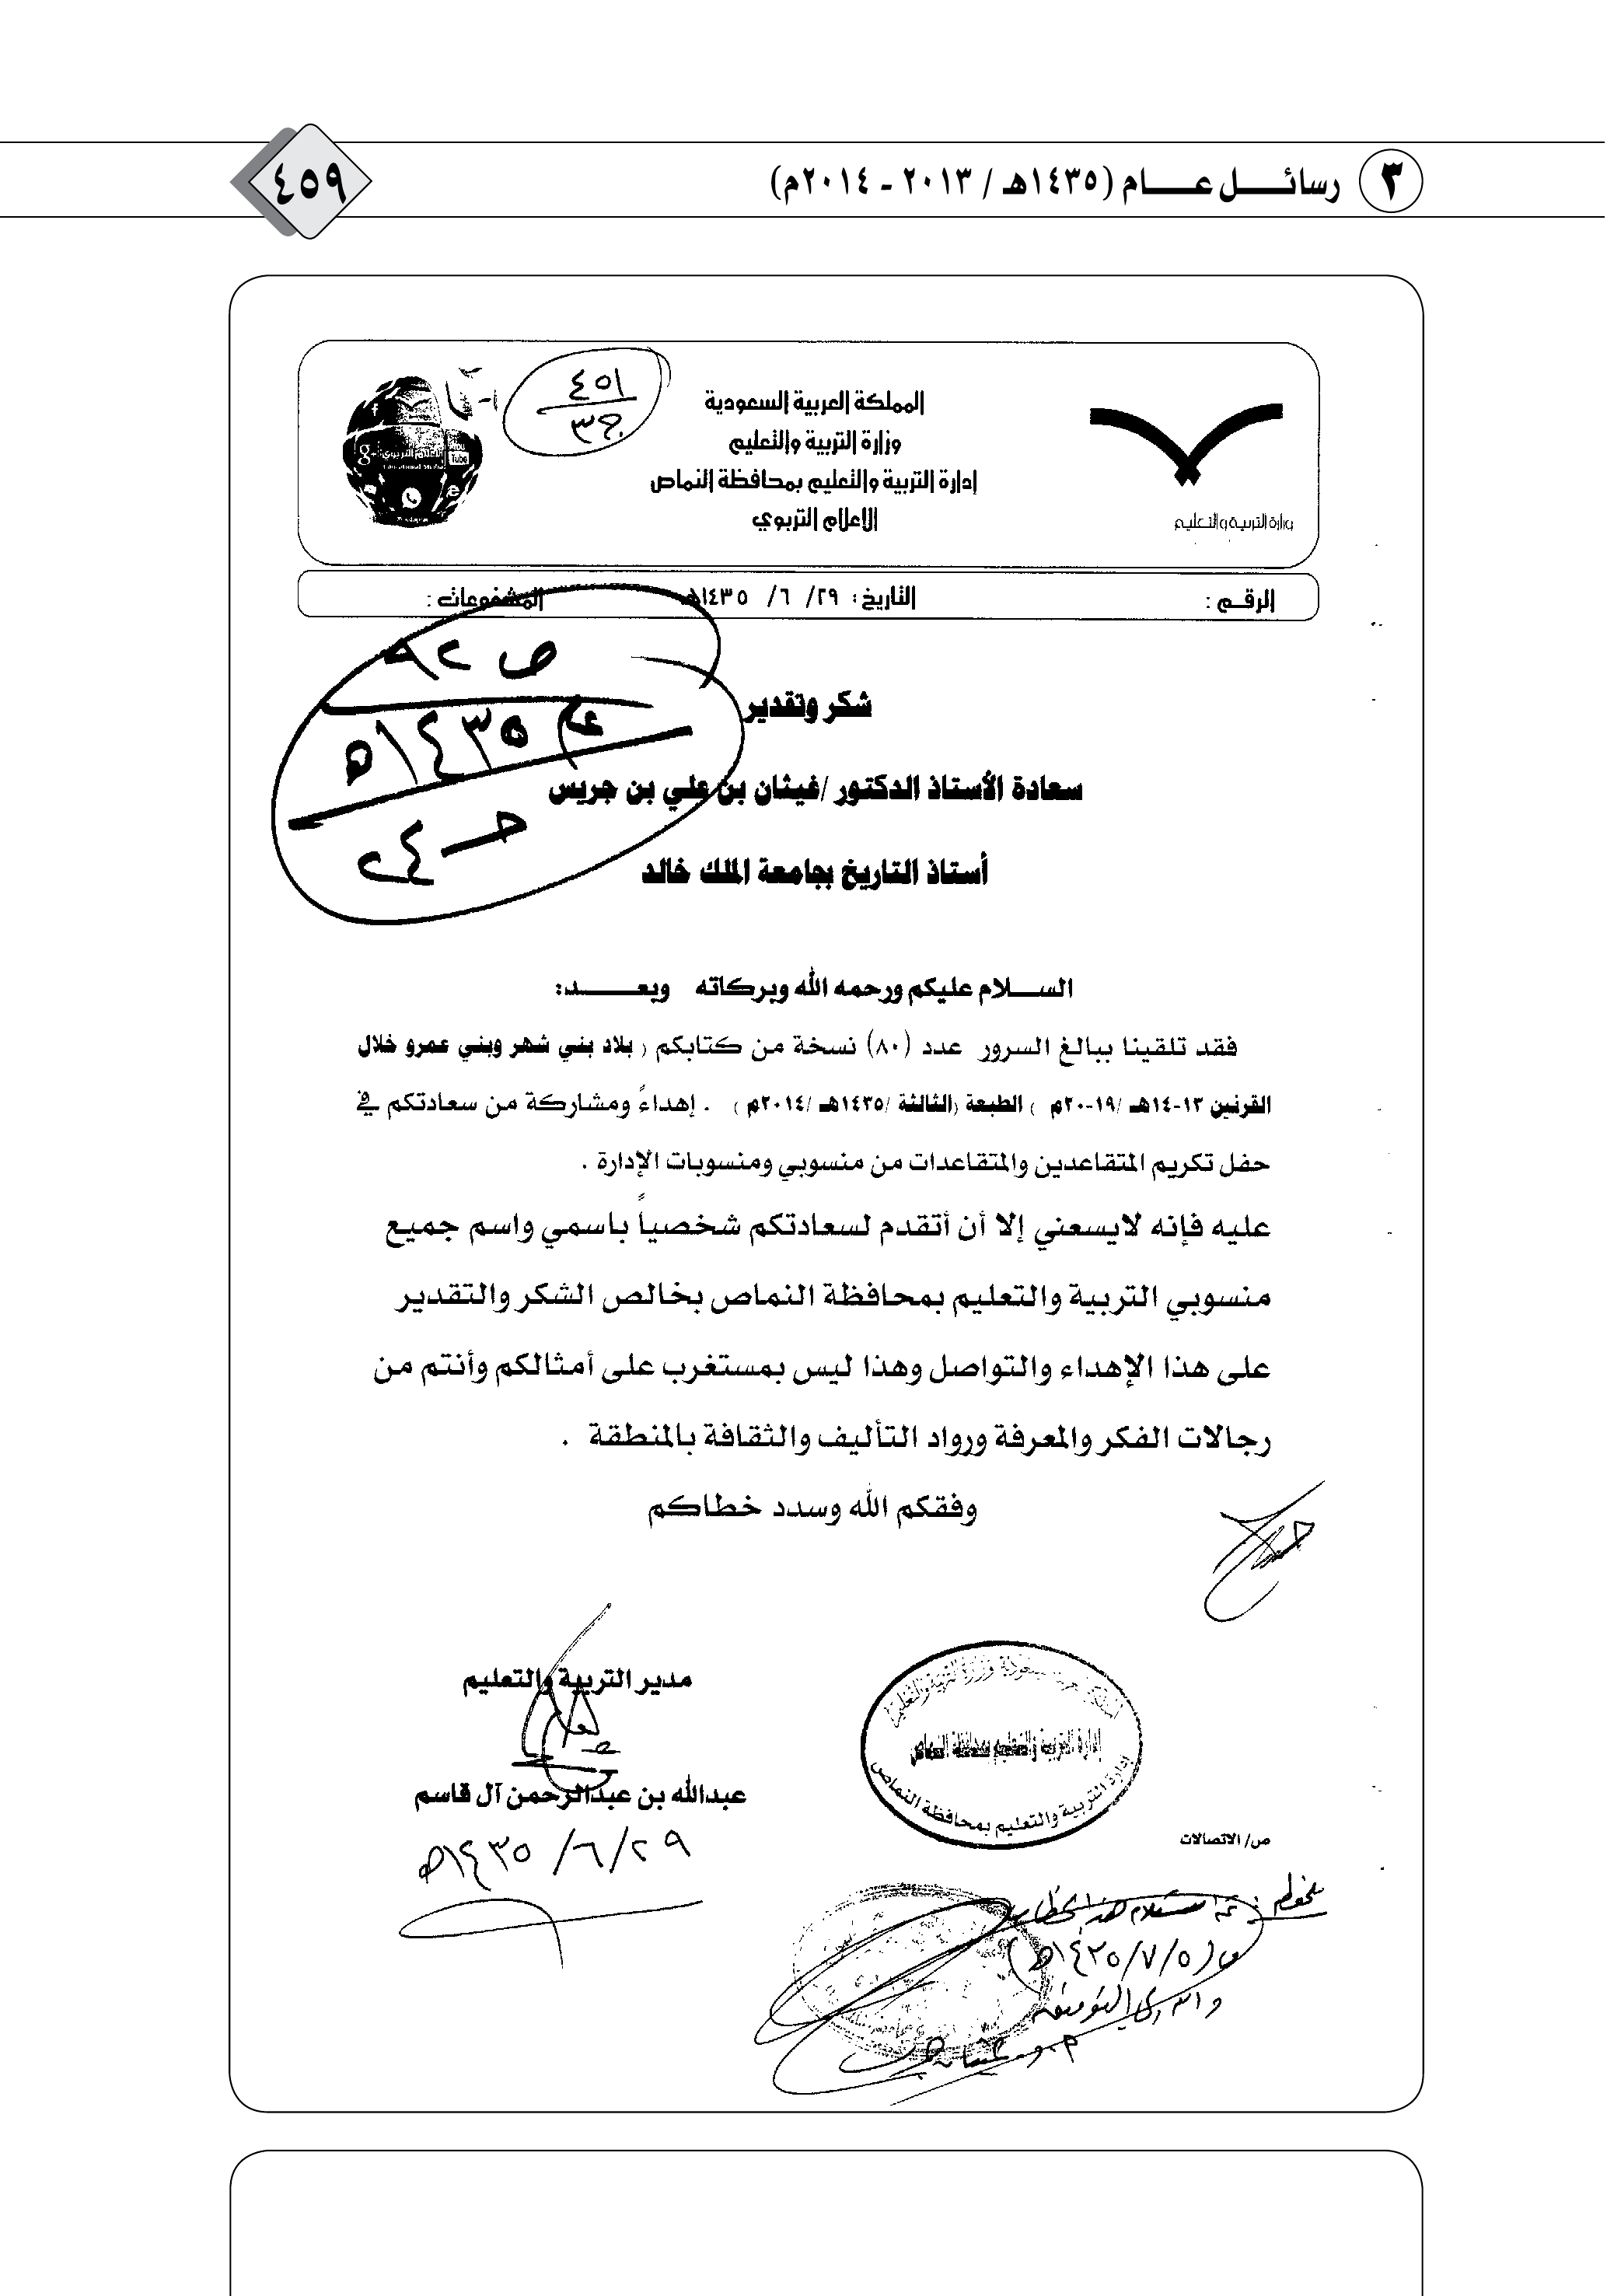 ٣ رسائـــل عـــام (١٤٣٥هـ / ٢٠١٣ - ٢٠١٤م)
٤٥٩
٤٥١
ج٣
المملكة العربية السعودية
وزارة التربية والتعليم
إدارة التربية والتعليم بمحافظة النماص
الاعلام التربوي
وزارة التربية والتعليم
الرقـم :
التاريخ : ٢٩/ ٦/ ١٤٣٥هـ
المشفوعات :
ص ٩٢
عام ١٤٣٥هـ
حـ ٢٤
شكر وتقدير
سعادة الأستاذ الدكتور /غيثان بن علي بن جريس
أستاذ التاريخ بجامعة الملك خالد
الســـلام عليكم ورحمه الله وبركاته وبعـــــد:
فقد تلقينا ببالغ السرور عدد (٨٠) نسخة من كتابكم ( بلاد بني شهر وبني عمرو خلال
القرنين ١٣-١٤هـ /١٩-٢٠م ) الطبعة (الثالثة /١٤٣٥هـ /٢٠١٤م ) . إهداءً ومشاركة من سعادتكم في
حفل تكريم المتقاعدين والمتقاعدات من منسوبي ومنسوبات الإدارة .
عليه فإنه لايسعني إلا أن أتقدم لسعادتكم شخصياً باسمي واسم جميع
منسوبي التربية والتعليم بمحافظة النماص بخالص الشكر والتقدير
على هذا الإهداء والتواصل وهذا ليس بمستغرب على أمثالكم وأنتم من
رجالات الفكر والمعرفة ورواد التأليف والثقافة بالمنطقة .
وفقكم الله وسدد خطاكم
مدير التربية والتعليم
عبدالله بن عبدالرحمن آل قاسم
١٤٣٥/٦/٢٩هـ
إدارة التربية والتعليم بمحافظة النماص
إدارة التربية والتعليم بمحافظة النماص
ص/ الاتصالات
استلام هذا الخطاب
(١٤٣٥/٧/٥هـ)